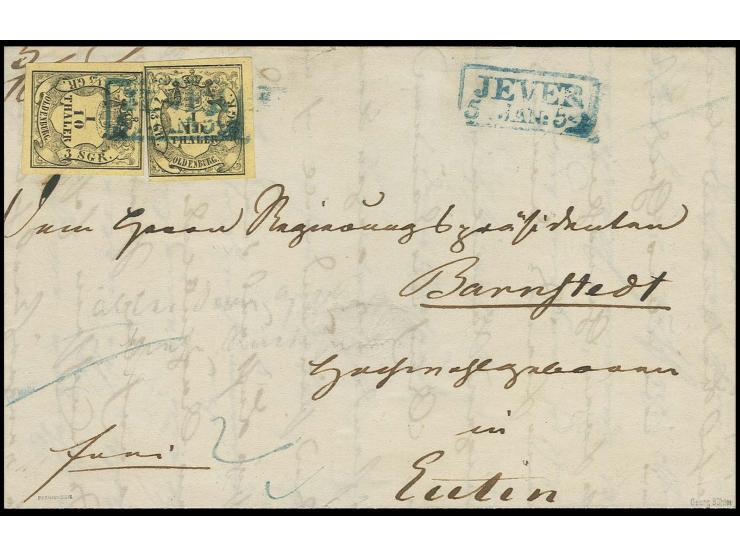 JEVER
5 JAN: 5
OLDENBURG.
1/10
THALER
3 SGR.
THALER
OLDENBURG.
Dem Herrn Regierungspräsidenten
Barnstedt
Hochwohlgeboren
in
frei
Eutin
Georg Bühler